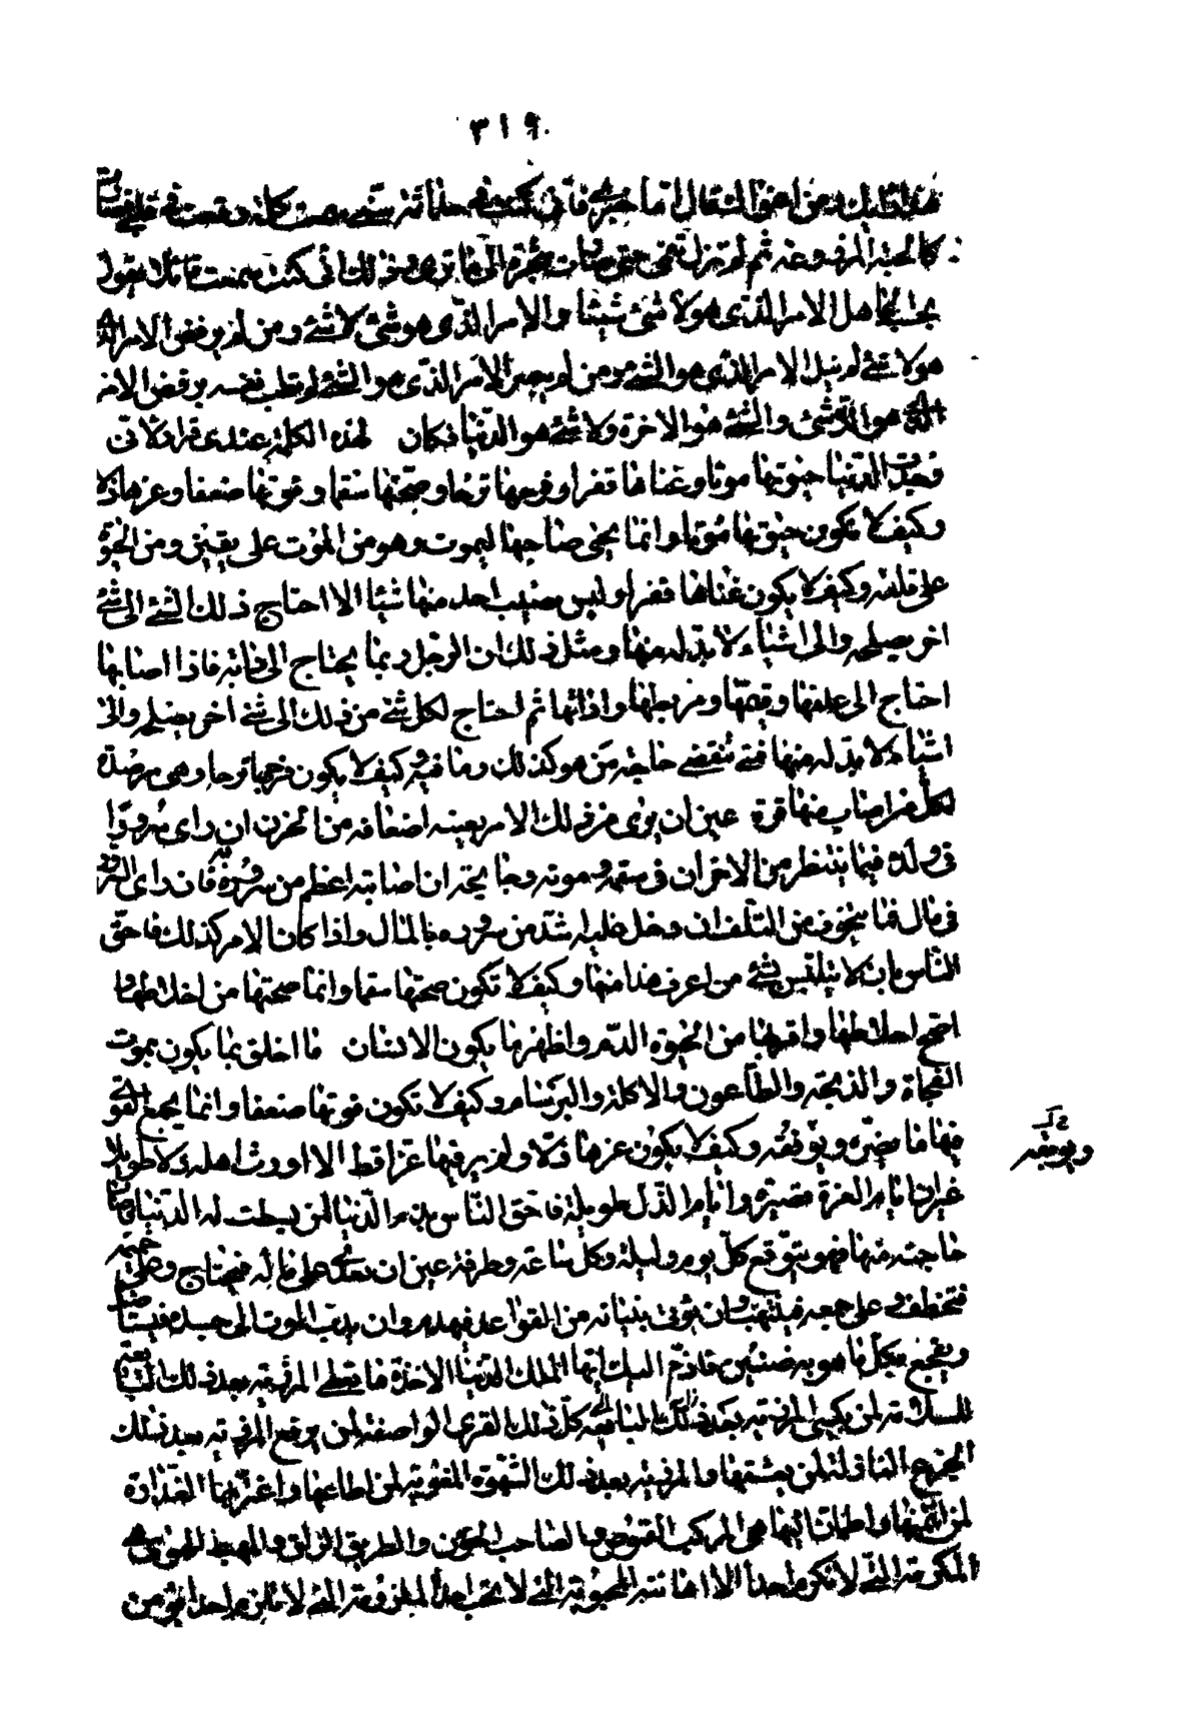 ٣١٩
كالحبة المزروعة ثم لم تزل تنمى حتى صارت شجرة الى ما ترى وذلك انى كنت سمعت قائلا يقول
يحسب الجاهل الامر الذى هو لا شئ شيئا والامر الذى هو شئ لا شئ ومن لم يرفض الامر الذى
هو لا شئ لم ينل الامر الذى هو الشئ ومن لم يبصر الامر الذى هو الشئ لم تطب نفسه برفض الامر
الذى هو لا شئ والشئ هو الاخرة ولا شئ هو الدنيا فكان لهذه الكلمة عندى قرار لانى
وجدت الدنيا حيوتها موتا وغناها فقرا وفرحها ترحا وصحتها سقما وقوتها ضعفا وعزها ذلا
وكيف لا تكون حيوتها موتا وانما يحيى صاحبها ليموت وهو من الموت على يقين ومن الحيوة
على قلعة وكيف لا يكون غناها فقرا وليس يصيب احد منها شيئا الا احتاج ذلك الشئ الى شئ
اخر يصلحه والى اشياء لا بد له منها ومثل ذلك ان الرجل ربما يحتاج الى دابة فاذا اصابها
احتاج الى علفها وقيمها ومربطها واداتها ثم احتاج لكل شئ من ذلك الى شئ اخر يصلحه والى
اشياء لا بد له منها فمتى تنقضى حاجة من هو كذلك وما فيه وكيف لا يكون فرحها ترحا وهى مرصدة
لكل من اصاب منها قرة عين ان يرى من ذلك الامر بعينه اضعافه من الحزن ان راى سرورا
فى ولده فيما ينتظر من الاحزان فى سقمه وموته وجايحة ان اصابته اعظم من سروره به فان راى السرور
فى مال فما يتخوف من التلف ان دخل عليه اشد من سروره بالمال واذا كان الامر كذلك فاحق
الناس بان لا يتلبس بشئ من اعرف هذا منها وكيف لا تكون صحتها سقما وانما صحتها من اخلاطها و
اصح اخلاطها واقربها من الحيوة الدم واظهر ما يكون الانسان ما اخلق بما يكون بموت
الفجاة والذبحة والطاعون والاكلة والبرسام وكيف لا تكون قوتها ضعفا وانما يجمع القوى
فيها ما يضره ويوبقه وكيف لا يكون عزها ذلا ولم ير فيها عز قط الا اورث اهله ذلا طويلا
غير ان ايام العزة قصيرة وايام الذل طويلة فاحق الناس بذم الدنيا لمن بسطت له الدنيا فاصاب
حاجته منها فهو يتوقع كل يوم وليلة وكل ساعة وطرفة عين ان يعدى على ماله فيجتاح وعلى حميمه
فيختطف وعلى جمعه فينتهب وان يؤتى بنيانه من القواعد فيهدم وان يدب الموت الى جسده فيستاصل
ويفجع بكل ما هو به ضنين فاذم اليك ايها الملك الدنيا الاخذة ما تعطى المورثة بعد ذلك التبعة
السلابة لمن تكسى المورثة بعد ذلك
المخرج التاركة لمن يعشقها والمورثة بعد ذلك الشقوة المغوية لمن اطاعها واغتر بها الغدارة
لمن ائتمنها واطمان اليها هى المركب القموص والصاحب الخؤن والطريق الزلق والمهبط المهوى هى
المكرمة التى لا تكرم احدا الا اهانته المحبوبة التى لا تحب احدا الملزومة التى لا تلزم احدا يوفى من
ويوبقه